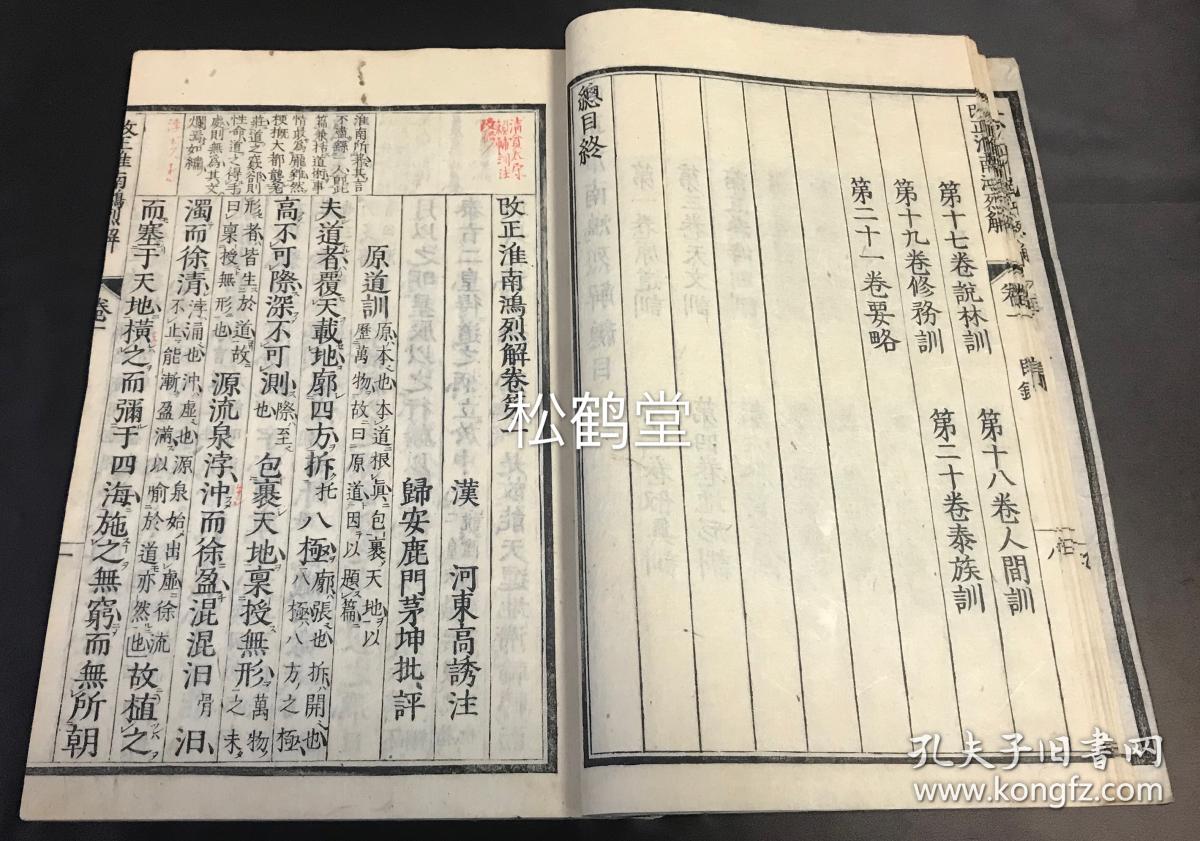 第十七卷說林訓
第十八卷人間訓
第十九卷修務訓
第二十卷泰族訓
第二十一卷要略
總目終
改正淮南鴻烈解卷第一
漢 河東高誘注
歸安鹿門茅坤批評
原道訓 原本也本道根眞包裹天地以歷萬物故曰原道因以題篇
夫道者覆天載地廓四方柝八極 廓張也柝開也八極八方之極
高不可際深不可測 際至也 包裹天地稟授無形 萬物之未
形者皆生於道故曰稟授無形也 源流泉浡沖而徐盈混混汩汩
濁而徐清 浡涌也沖虛也源泉始出虛徐流不止能漸盈滿以喻於道亦然也 故植之
而塞于天地橫之而彌于四海施之無窮而無所朝
改正淮南鴻烈解
卷一
松鹤堂
孔夫子旧书网
www.kongfz.com